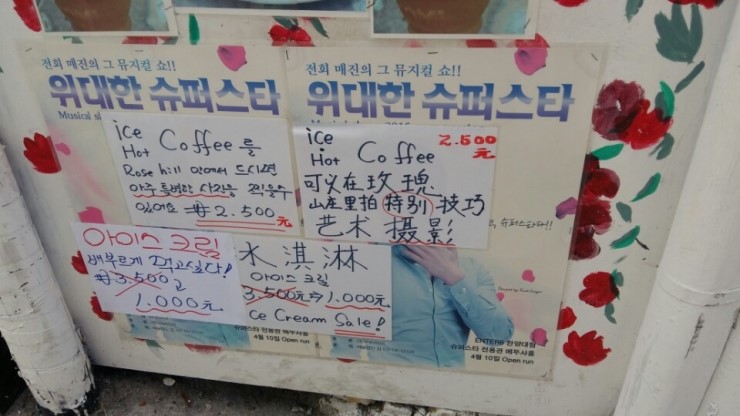 전회 매진의 그 뮤지컬 쇼!!
위대한 슈퍼스타
Musical
ice
Hot Coffee를
Rose hill 안에서 드시면
아주 특별한 사진을 찍을수
있어요 ₩2.500元
아이스크림
배부르게 먹고싶다!
₩3.500고
1.000元
전회 매진의 그 뮤지컬 쇼!!
위대한 슈퍼스타
ice 2.500元
Hot Coffee
可以在玫瑰
山庄里拍特别技巧
艺术摄影!
슈퍼스타다!!
氷淇淋
아이스크림
3.500元⇒1.000元
Ice Cream Sale!
슈퍼스타 전용관 에두사홀
4월 10일 Open run
ENTER6 한양대점
슈퍼스타 전용관 에두사홀
4월 10일 Open run